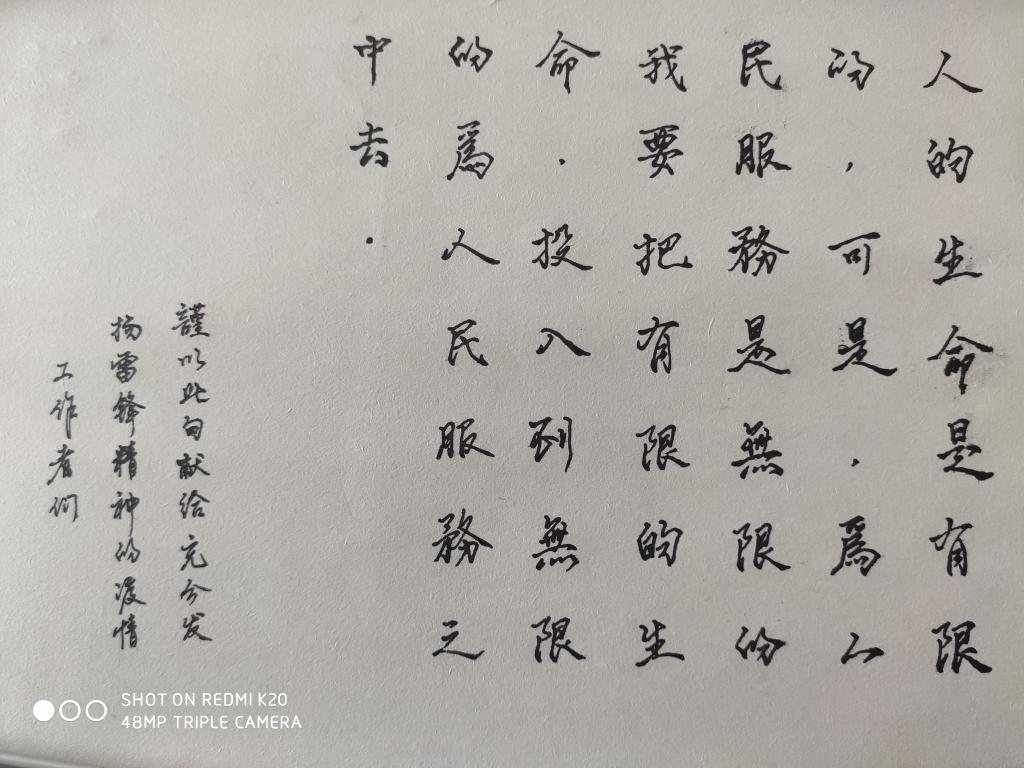 人的生命是有限
的,可是.爲人
民服務是無限的
我要把有限的生
命.投入到無限
的爲人民服務之
中去.
謹以此句献给充分发
扬雷锋精神的疫情
工作者们
SHOT ON REDMI K20
48MP TRIPLE CAMERA